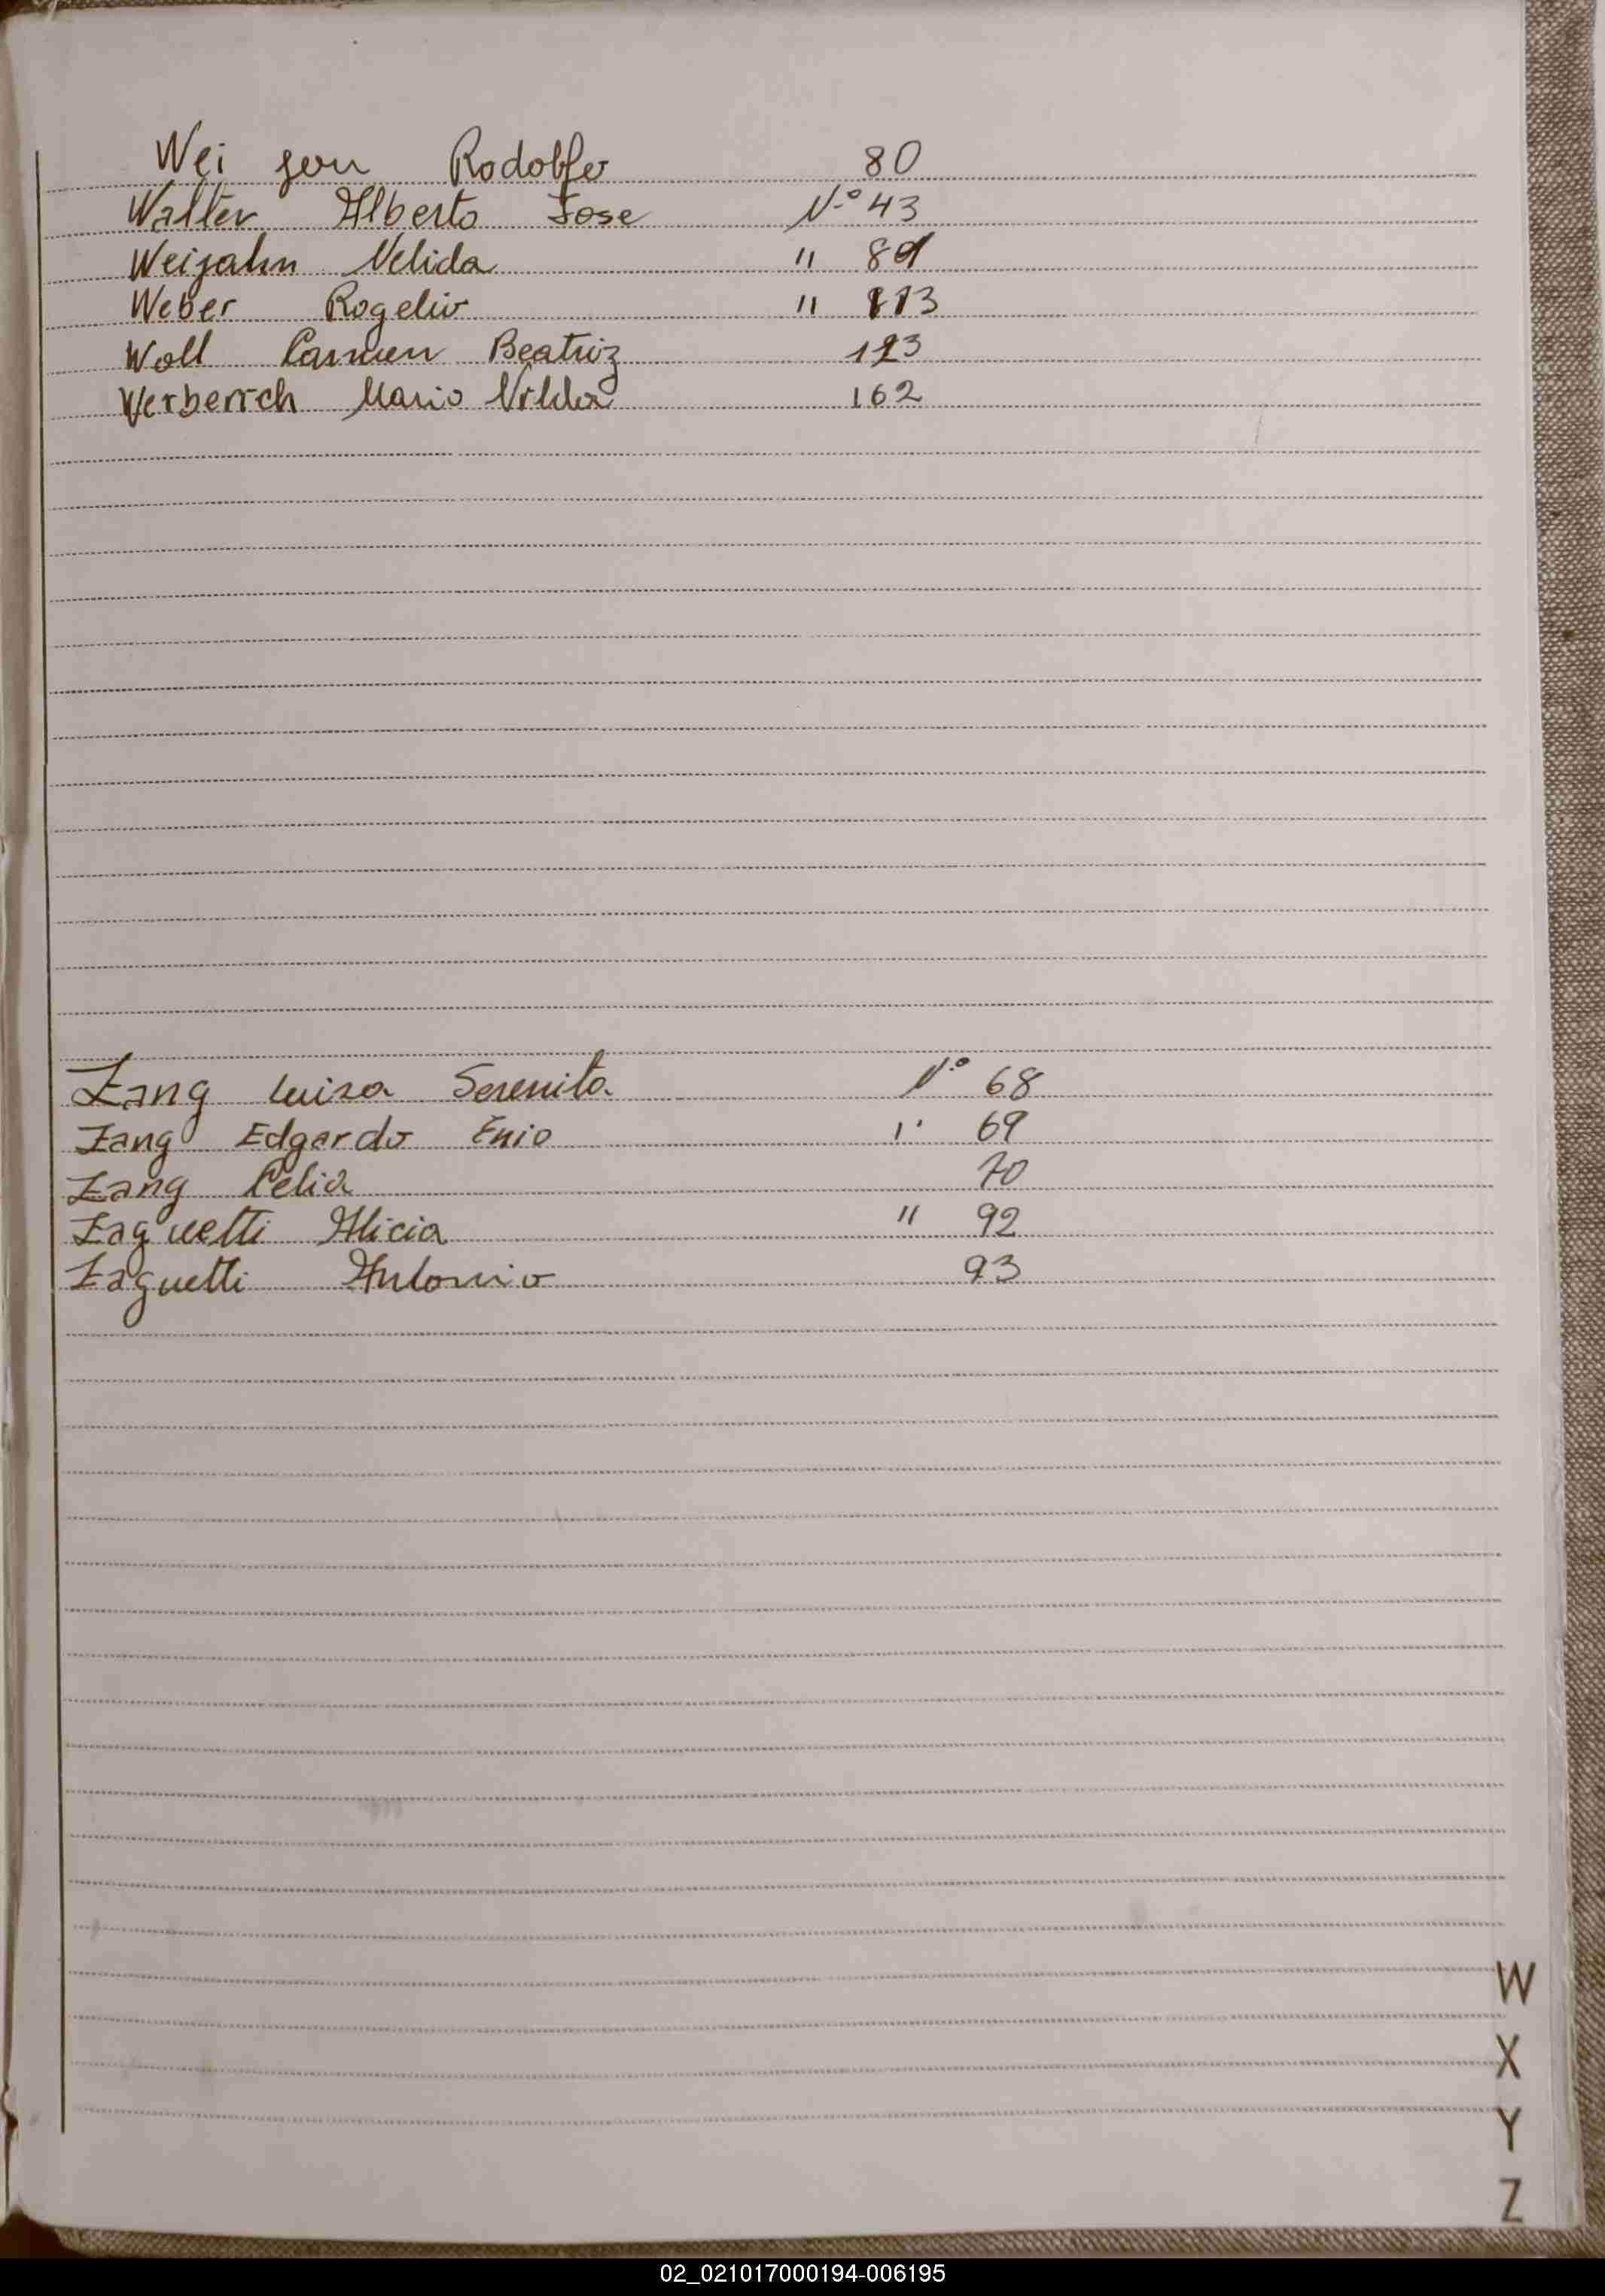 Wei jen Rodolfo 80
Walter Alberto Jose N.º 43
Weijahn Nelida " 81
Weber Rogelio " 113
Woll Carmen Beatriz 123
Werberich Mario Nilda 162
Zang Luisa Serenita Nº 68
Zang Edgardo Enio " 69
Zang Celia 70
Zaguetti Alicia " 92
Zaguetti Antonio 93
W
X
Y
Z
02_021017000194-006195